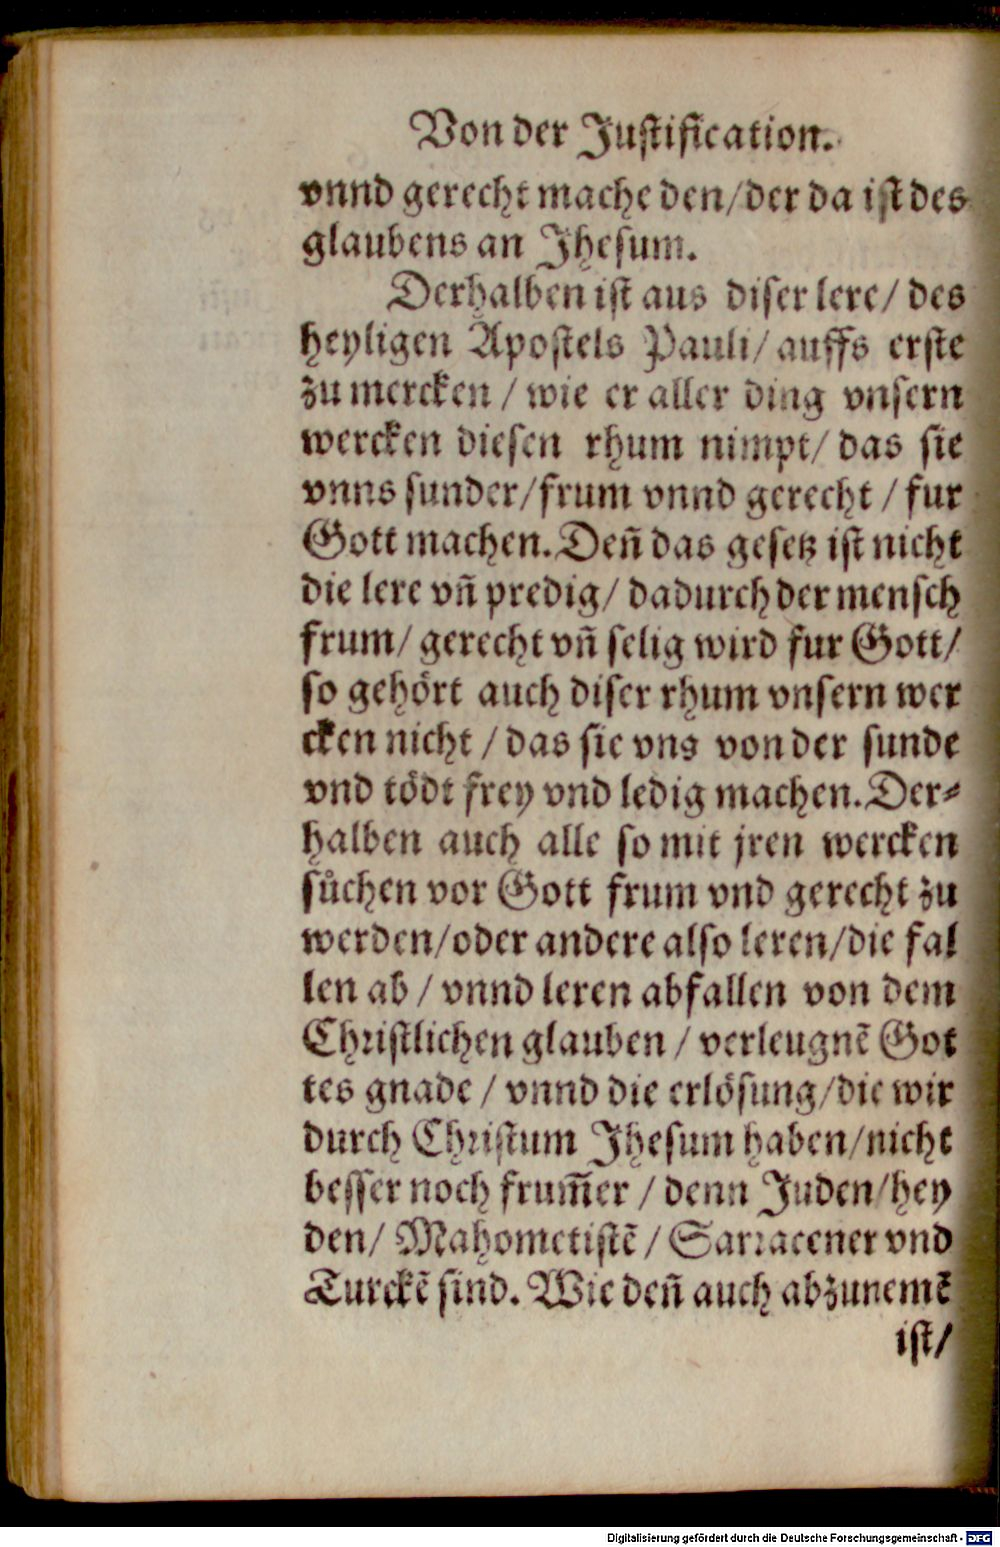 Von der Justification.
vnnd gerecht mache den/der da ist des
glaubens an Jhesum.
Derhalben ist aus diser lere/ des
heyligen Apostels Pauli/ auffs erste
zu mercken / wie er aller ding vnsern
wercken diesen rhum nimpt/ das sie
vnns sunder/frum vnnd gerecht / fur
Gott machen. Deñ das gesetz ist nicht
die lere vñ predig/ dadurch der mensch
frum/ gerecht vñ selig wird fur Gott/
so gehört auch diser rhum vnsern wer
cken nicht / das sie vns von der sunde
vnd tödt frey vnd ledig machen. Der⸗
halben auch alle so mit jren wercken
sůchen vor Gott frum vnd gerecht zu
werden/oder andere also leren/die fal
len ab / vnnd leren abfallen von dem
Christlichen glauben / verleugnẽ Got
tes gnade / vnnd die erlösung/die wir
durch Christum Jhesum haben/nicht
besser noch frum̃er / denn Juden/hey
den/ Mahometistẽ / Sarracener vnd
Turckẽ sind. Wie deñ auch abzunemẽ
ist/
Digitalisierung gefördert durch die Deutsche Forschungsgemeinschaft - DFG